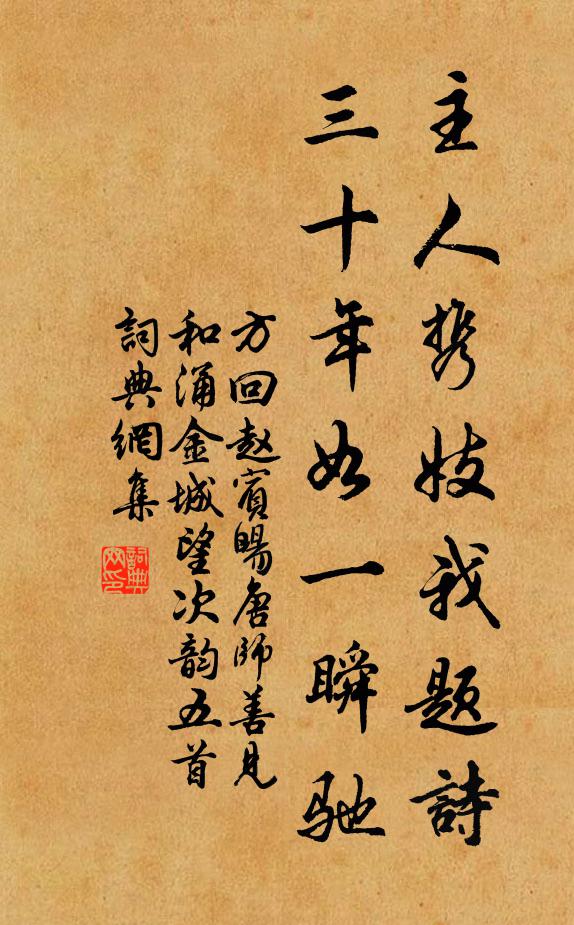 主人携妓我题詩
三十年如一瞬馳
方回赵賓暘唐師善見
和涌金城望次韵五首
詞典網集
詞典網印